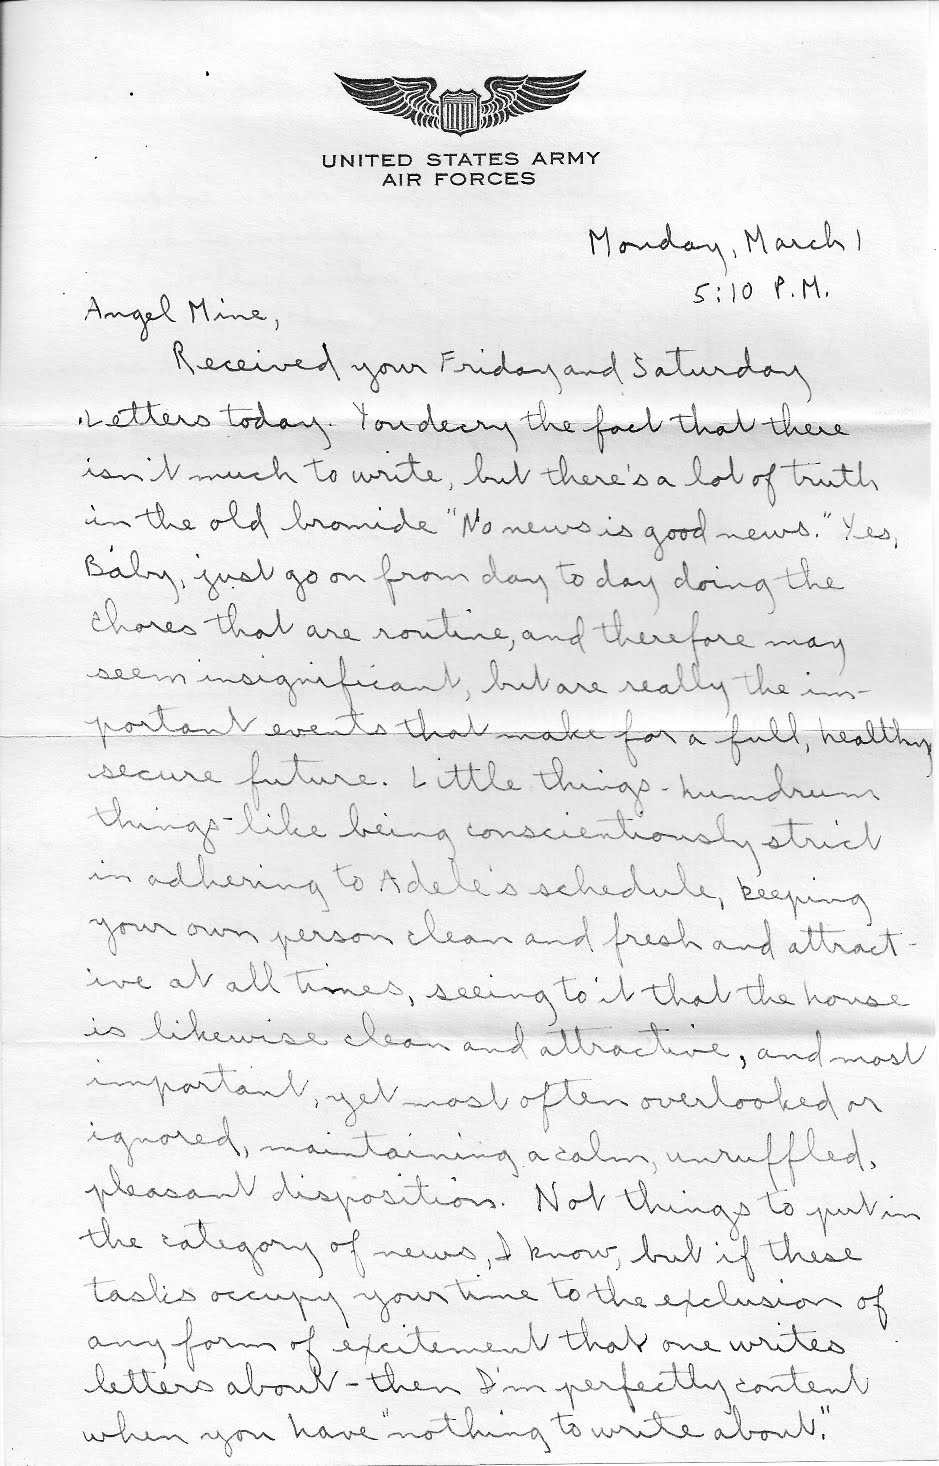 UNITED STATES ARMY
AIR FORCES
Monday, March 1
5:10 P.M.
Angel Mine,
Received your Friday and Saturday
Letters today. You decry the fact that there
isn't much to write, but there's a lot of truth
in the old bromide "No news is good news." Yes,
Baby, just go on from day to day doing the
chores that are routine, and therefore may
seem insignificant, but are really the im-
portant events that make for a full, healthy
secure future. Little things - humdrum
things - like being conscientiously strict
in adhering to Adele's schedule, keeping
your own person clean and fresh and attract-
ive at all times, seeing to it that the house
is likewise clean and attractive, and most
important, yet most often overlooked or
ignored, maintaining a calm, unruffled,
pleasant disposition. Not things to put in
the category of news, I know, but if these
tasks occupy your time to the exclusion of
any form of excitement that one writes
letters about - then I'm perfectly content
when you have "nothing to write about."